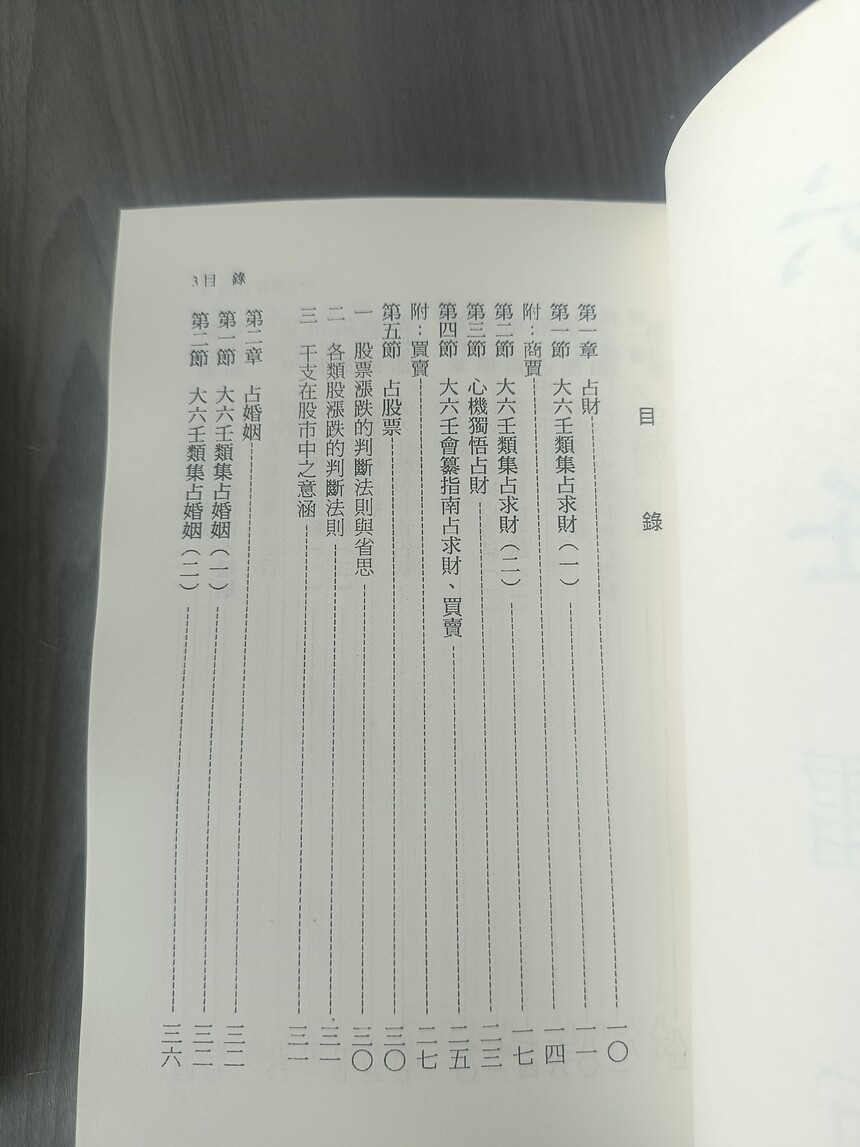 目錄
第一章 占財 一〇
第一節 大六壬類集占求財(一) 一一
附:商賈 一四
第二節 大六壬類集占求財(二) 一七
第三節 心機獨悟占財 二三
第四節 大六壬會纂指南占求財、買賣 二五
附:買賣 二七
第五節 占股票 三〇
一 股票漲跌的判斷法則與省思 三〇
二 各類股漲跌的判斷法則 三一
三 干支在股市中之意涵 三一
第二章 占婚姻 三二
第一節 大六壬類集占婚姻(一) 三二
第二節 大六壬類集占婚姻(二) 三六
3 目 錄